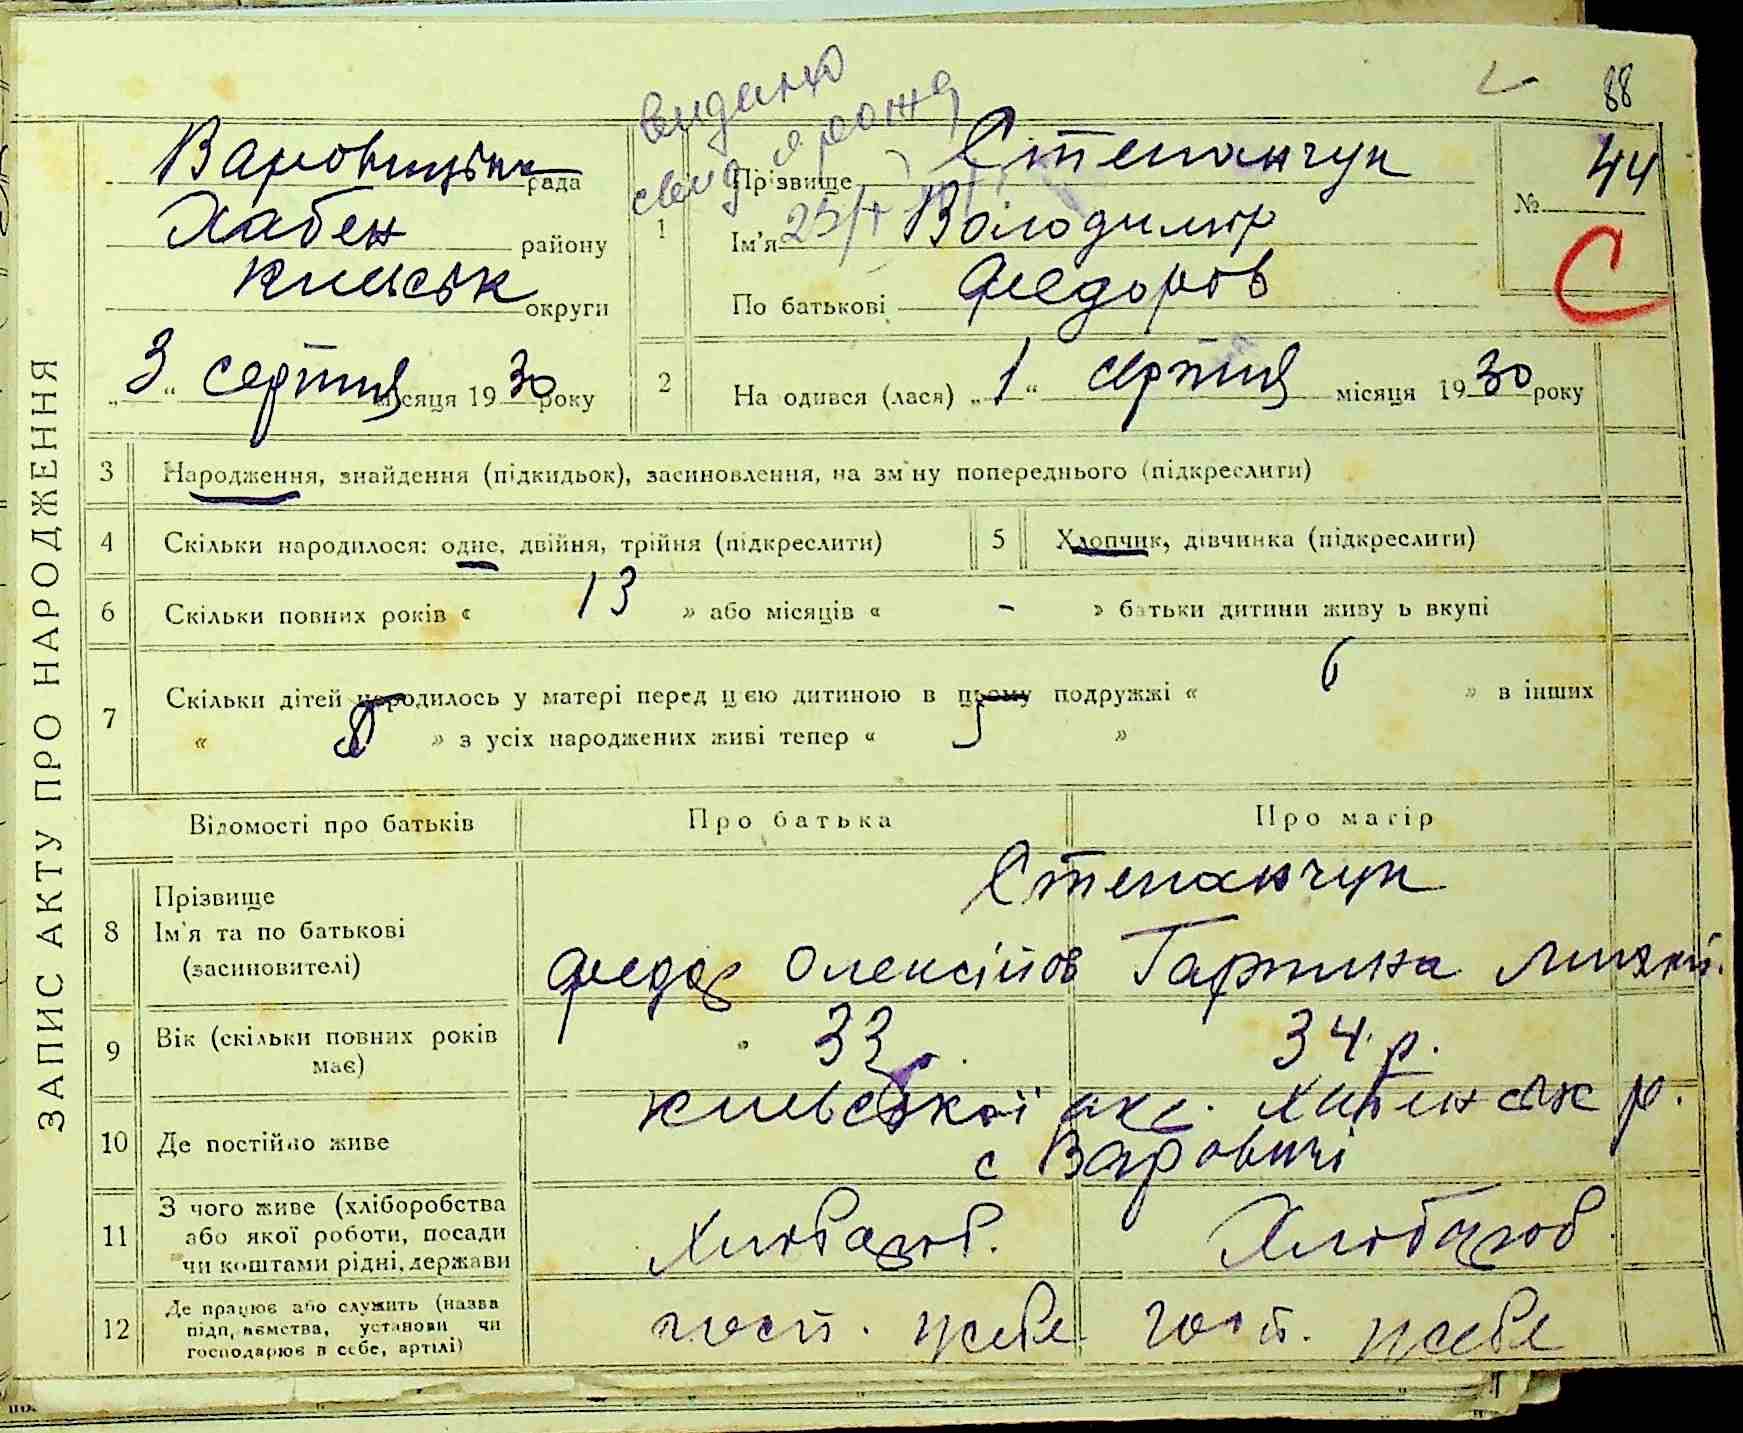 88
видано
свид о рожд
Варовицька рада
Хабен району
Київськ округи
„ 3 “ серпня місяця 19 30 року
1
Прізвище Степанчук
Ім'я Володимир
По батькові Федоров
№ 44
С
2 На одився (лася) „ 1 “ серпня місяця 19 30 року
ЗАПИС АКТУ ПРО НАРОДЖЕННЯ
3 Народження, знайдення (підкидьок), засиновлення, на зм ну попереднього (підкреслити)
4 Скільки народилося: одне, двійня, трійня (підкреслити) 5 Хлопчик, дівчинка (підкреслити)
6 Скільки повних років « 13 » або місяців « - » батьки дитини живу ь вкупі
7 Скільки дітей народилось у матері перед цією дитиною в цьому подружжі « 6 » в інших
« » з усіх народжених живі тепер « 5 »
Відомості про батьків Про батька Про матір
8 Прізвище
Ім'я та по батькові
(засиновителі)
Степанчук
Федор Олексійов Гарпина
9 Вік (скільки повних років
має)
33 34 р.
10 Де постійно живе
Київської окс. Хабенськ р.
с Варовичі
11 З чого живе (хліборобства
або якої роботи, посади
чи коштами рідні, держави
Хлібороб. Хлібороб.
12 Де працює або служить (назва
підп, ємства, установи чи
господарює в себе, артілі)
госп. усебе госп. усебе